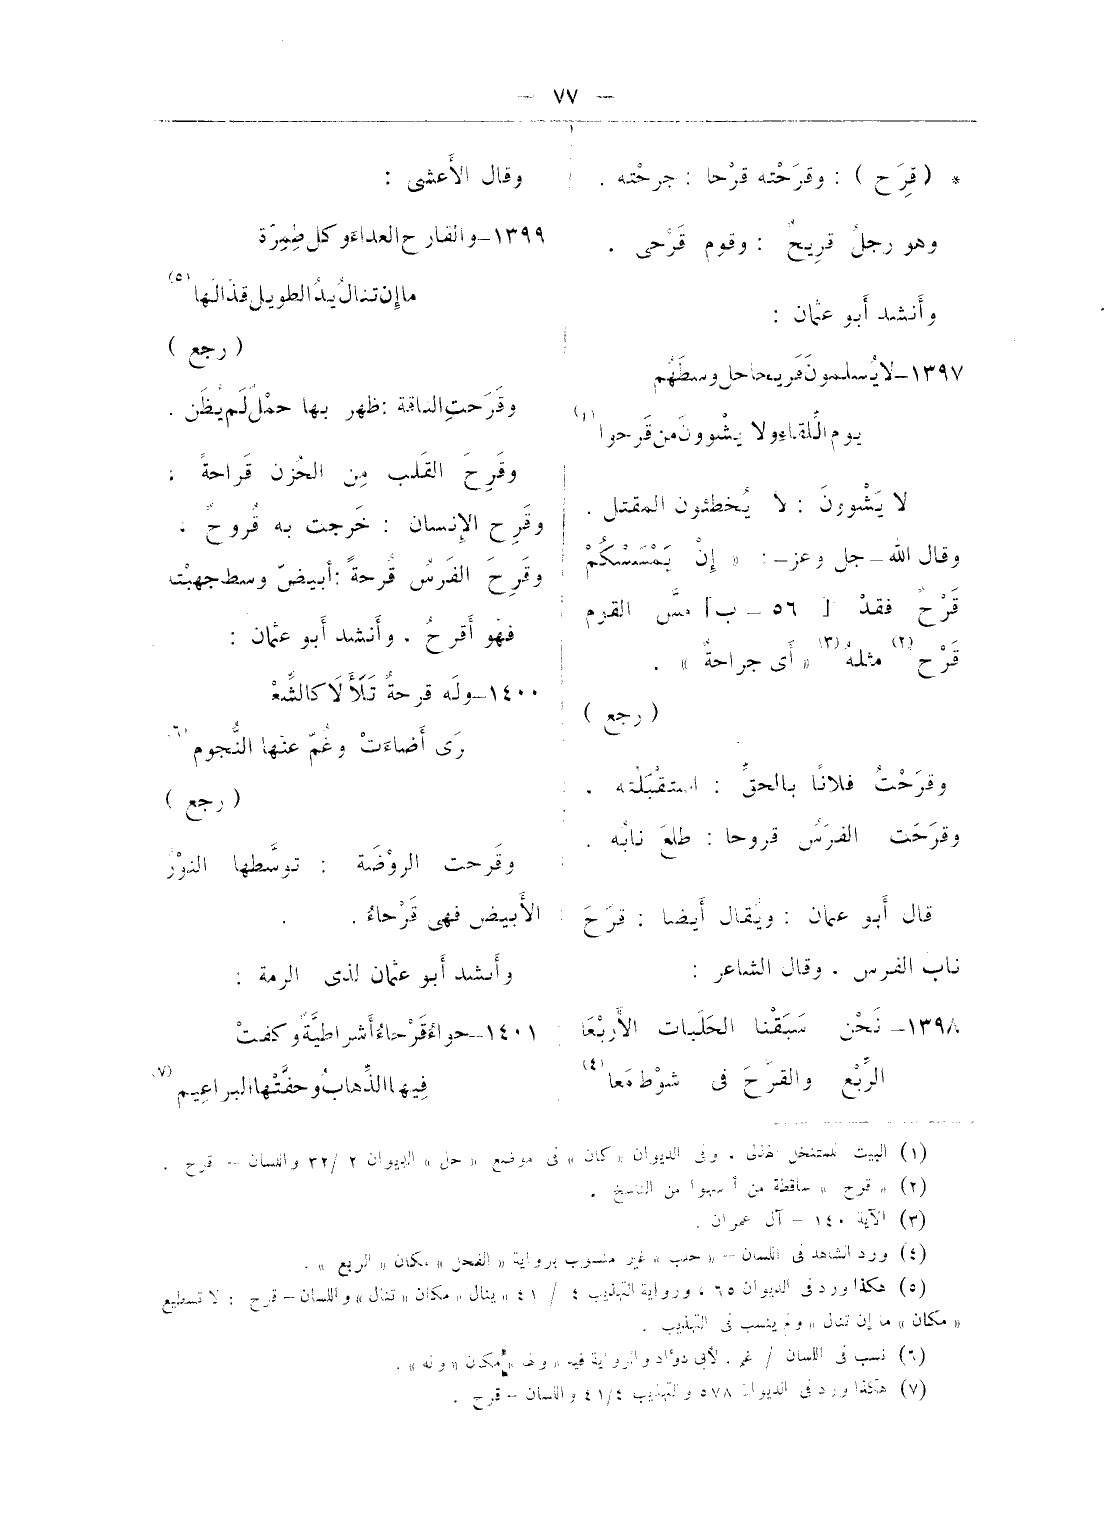 — ٧٧ —
* ( قرَِح ) : وقرَحْته قرْحا : جرحْته .
وهو رجلُ قريحٌ : وقوم قَرْحى .
وأَنشد أَبو عثمان :
١٣٩٧–لايُسلمونَ قَريحا حل وسطَهُم
يوم اللِّقاءِ ولا يشْوونَ من قَرحوا (١)
لا يَشْوونَ : لا يُخطئون المقتل .
وقال الله – جل وعز – : « إِنْ يَمْسَسْكُمْ
قَرْحٌ فقدْ [ ٥٦ – ب ] مسَّ القوم
قَرْح (٢) مثلهُ (٣) » أَى جراحةٌ » .
( رجع )
وقرَحْتُ فلانًا بالحقِّ : استقْبَلْته .
وقرَحَت الفرَسُ قروحا : طلعَ نابُه .
قال أَبو عثمان : ويُقال أَيضا : قرَحَ
ناب الفرس . وقال الشاعر :
١٣٩٨– نَحْن سَبَقْنا الحَلَبات الأَربْعَا
الرِّبْع والقرّحَ فى شوْط مَعا (٤)
وقال الأَعشى :
١٣٩٩–والقارح العداءَ وكل طِمِرَة
ما إِن تنالُ يدُ الطويل قذَالَها (٥)
( رجع )
وقَرَحتِ الناقة : ظهر بها حمْلٌ لَم يُظَن .
وقَرِحَ القَلب مِن الحُزن قَراحةً ،
وقَرِح الإِنسان : خَرجت به قُروحٌ ،
وقَرِحَ الفَرسُ قُرحةً : أَبيضّ وسط جهبْته
فهْو أَقرحُ . وأَنشد أَبو عثمان :
١٤٠٠–ولَه قرحةٌ تَلَأْلَا كالشَّعْ
رَى أَضاءَتْ وغُمّ عنْها النُّجوم (٦)
( رجع )
وقَرحت الروْضَة : توسَّطها النوْرُ
الأَبيض فهى قَرْحاءُ .
وأَنشد أَبو عثمان لذى الرمة :
١٤٠١–حواءُ قَرْحاءُ أَشراطيَّةٌ وكفتْ
فِيها الذِّهابُ وحفَّتْها البراعِيم (٧)
(١) البيت للمتنخل الهذلى . وفى الديوان « كان » فى موضع « حل » الديوان ٢ / ٣٢ واللسان – قرح .
(٢) « قرح » ساقطة من أ سهوا من الناسخ .
(٣) الآية ١٤٠ – آل عمران .
(٤) ورد الشاهد فى اللسان – « حلب » غير منسوب برواية « الفحل » مكان « الربع » .
(٥) هكذا ورد فى الديوان ٦٥ ، ورواية التهذيب ٤ / ٤١ « ينال » مكان « تنال » واللسان – قرح : لا تسطيع
« مكان » ما إن تنال » ولم ينسب فى التهذيب .
(٦) نسب فى اللسان / غم . لأبى دؤاد والرواية فيه « ولها » مكان « وله » .
(٧) هكذا ورد فى الديوان ٥٧٨ والتهذيب ٤/٤١ واللسان – قرح .